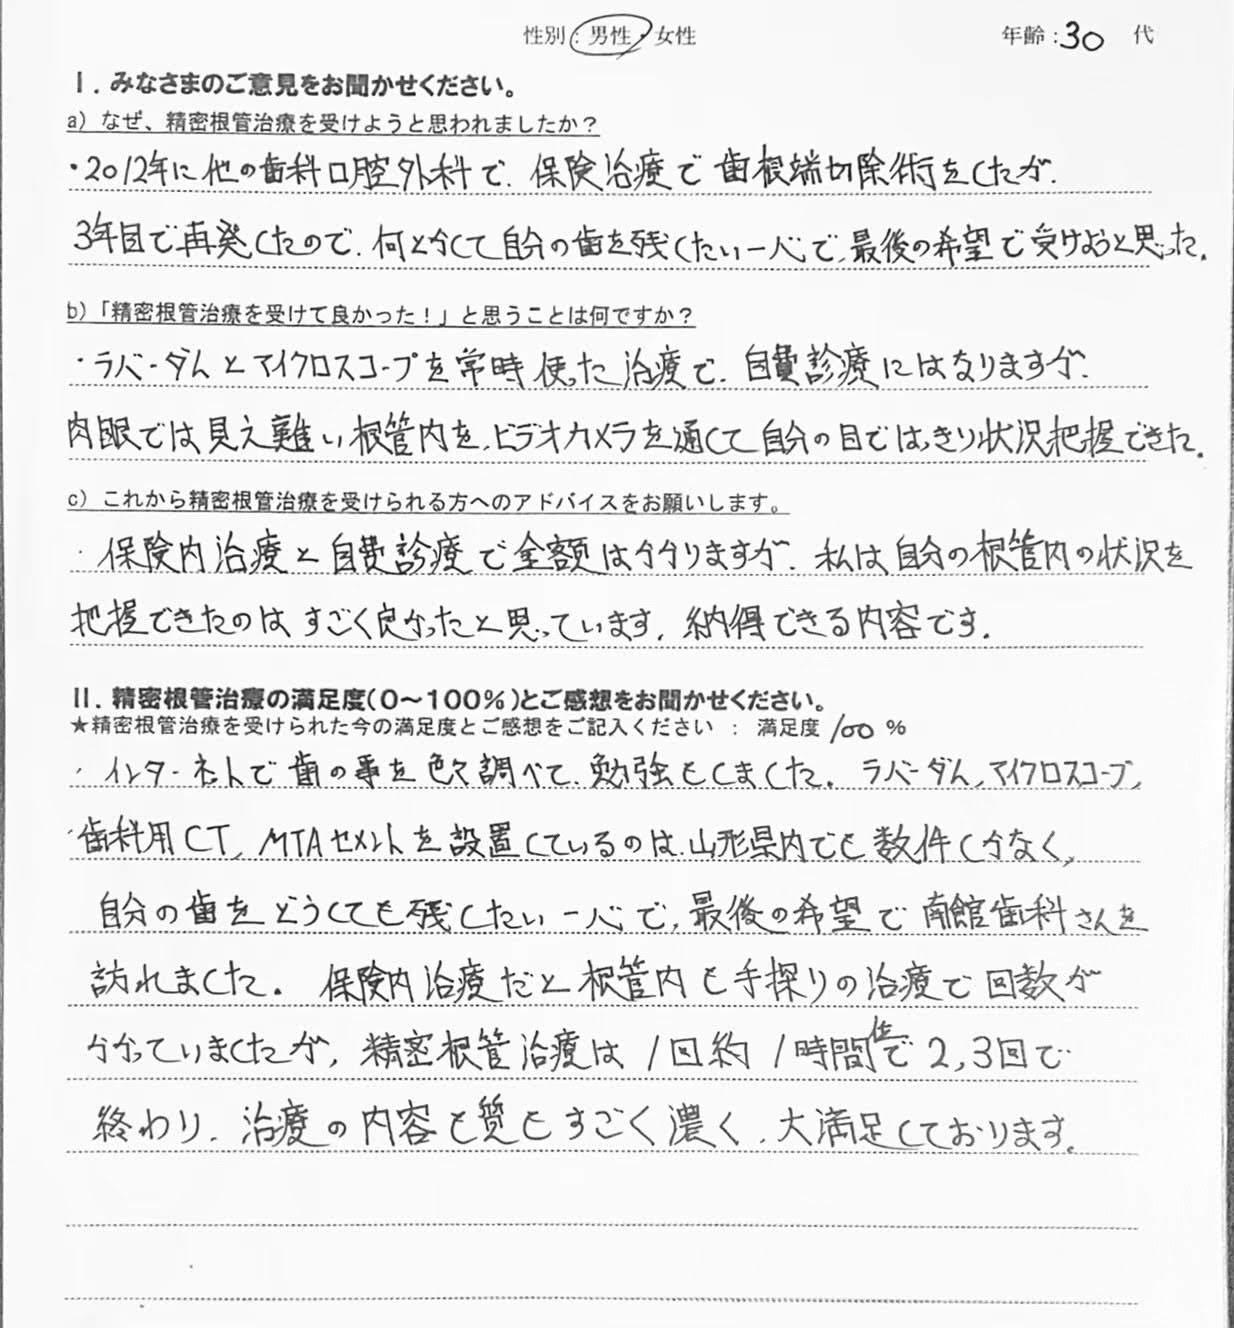 性別：男性・女性　年齢：30 代
Ⅰ．みなさまのご意見をお聞かせください。
a）なぜ、精密根管治療を受けようと思われましたか？
・2012年に他の歯科口腔外科で、保険治療で歯根端切除術をしたが、
3年目で再発したので、何とかして自分の歯を残したい一心で、最後の希望で受けようと思った。
b）「精密根管治療を受けて良かった！」と思うことは何ですか？
・ラバーダムとマイクロスコープを常時使った治療で、自費診療にはなりますが、
肉眼では見え難い根管内を、ビデオカメラを通して自分の目ではっきり状況把握できた。
c）これから精密根管治療を受けられる方へのアドバイスをお願いします。
・保険内治療と自費診療で金額はかかりますが、私は自分の根管内の状況を
把握できたのは、すごく良かったと思っています。納得できる内容です。
Ⅱ．精密根管治療の満足度（0～100％）とご感想をお聞かせください。
★精密根管治療を受けられた今の満足度とご感想をご記入ください ： 満足度 100 ％
・インターネットで歯の事を色々調べて、勉強もしました。ラバーダム、マイクロスコープ、
歯科用CT、MTAセメントを設置しているのは、山形県内でも数件しかなく、
自分の歯をどうしても残したい一心で、最後の希望で南館歯科さんを
訪れました。保険内治療だと根管内も手探りの治療で回数が
かかっていましたが、精密根管治療は1回約1時間位で2,3回で
終わり、治療の内容も質もすごく濃く、大満足しております。